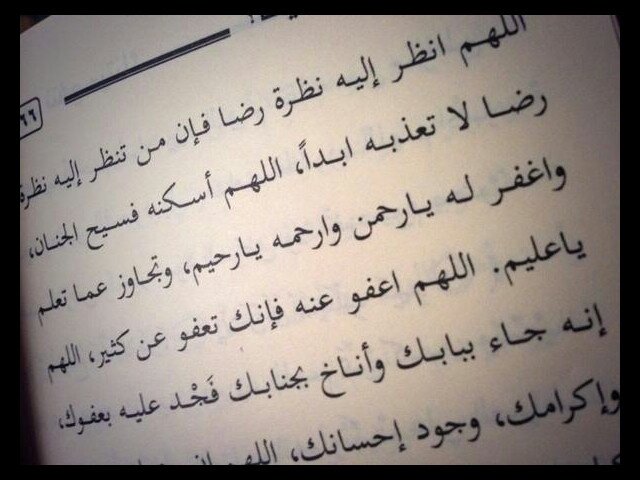 ٦٦
اللهم انظر إليه نظرة رضا فإن من تنظر إليه نظرة
رضا لا تعذبه ابداً، اللهم أسكنه فسيح الجنان،
واغفر له يارحمن وارحمه يارحيم، وتجاوز عما تعلم
ياعليم. اللهم اعفو عنه فإنك تعفو عن كثير، اللهم
إنه جاء ببابك وأناخ بجنابك فَجْد عليه بعفوك،
وإكرامك، وجود إحسانك، اللهم